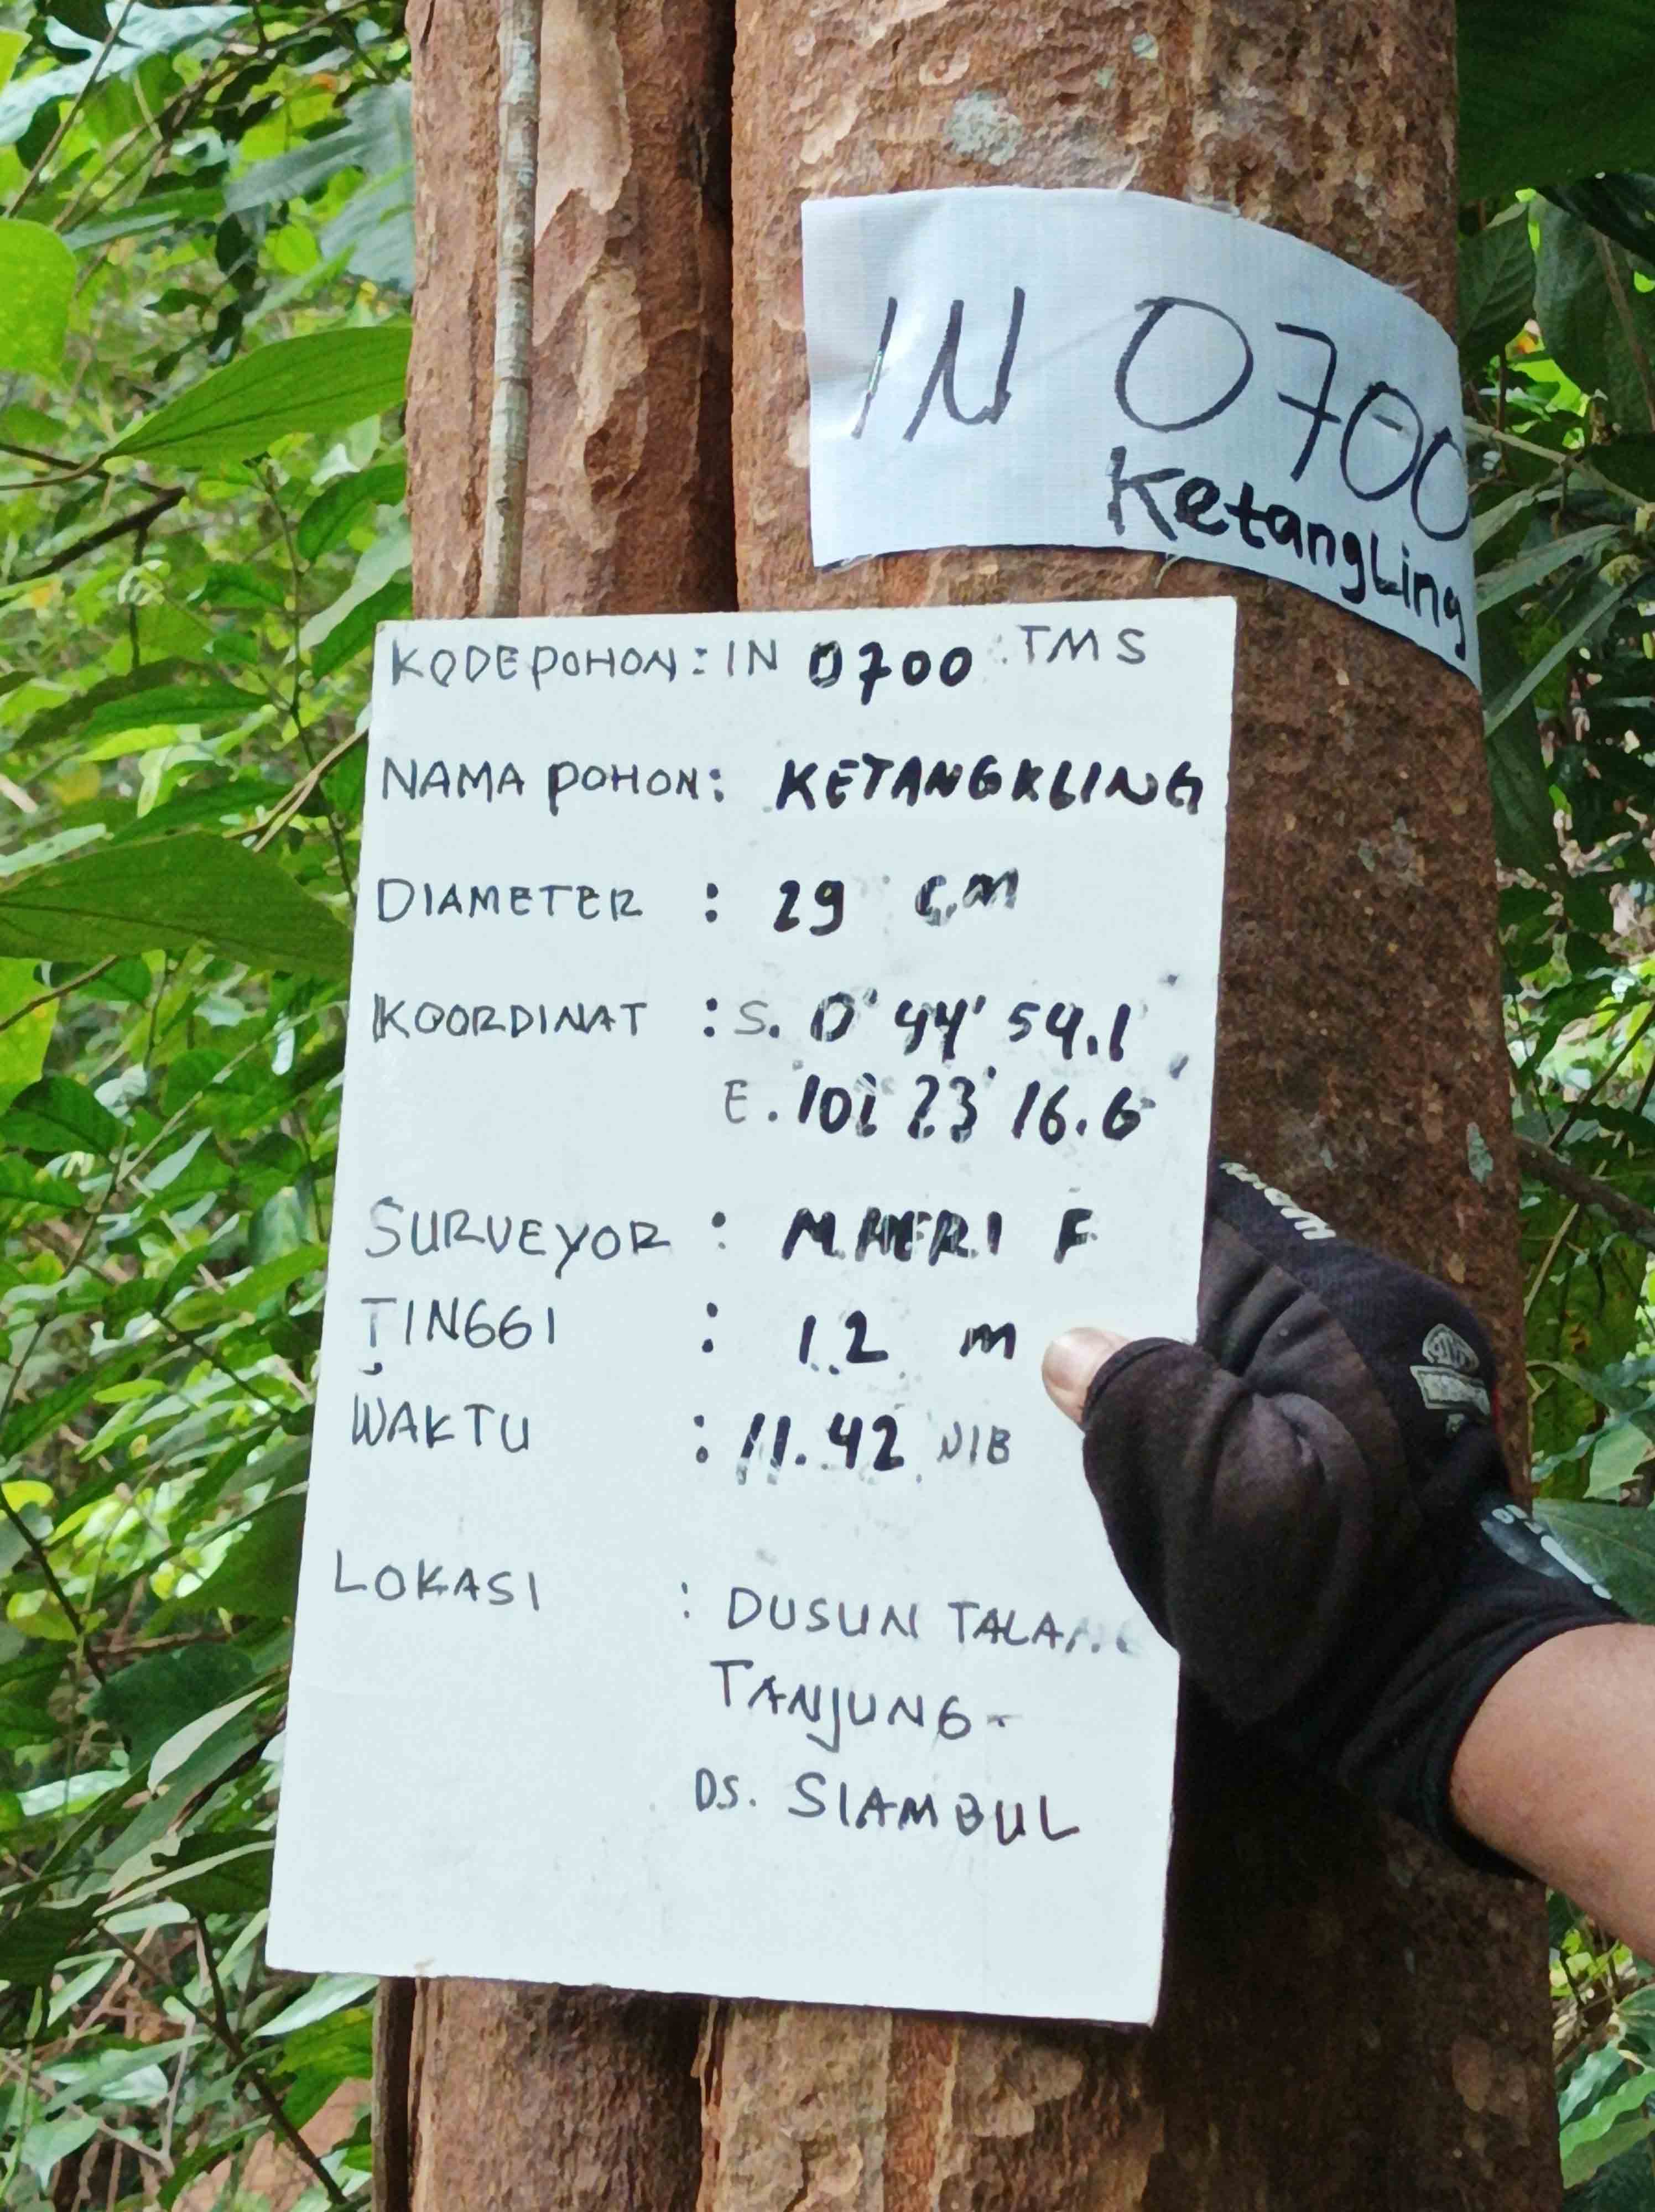 IN 0700
KetangLing
KODE POHON : IN 0700 TMS
NAMA POHON : KETANGKLING
DIAMETER : 29 cm
KOORDINAT : S. 0° 44' 54.1
E. 102° 23' 16.6
SURVEYOR : M.HERI F
TINGGI : 12 m
WAKTU : 11.42 WIB
LOKASI : DUSUN TALANG
TANJUNG-
DS. SIAMBUL